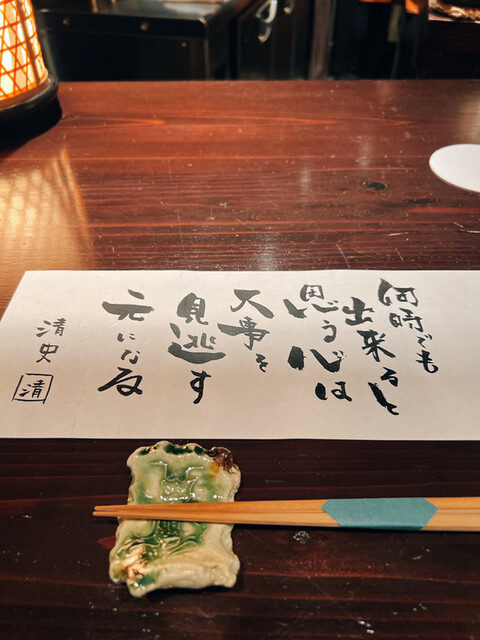 何時でも
出来ると
思う心は
大事を
見逃す
元になる
清史
清